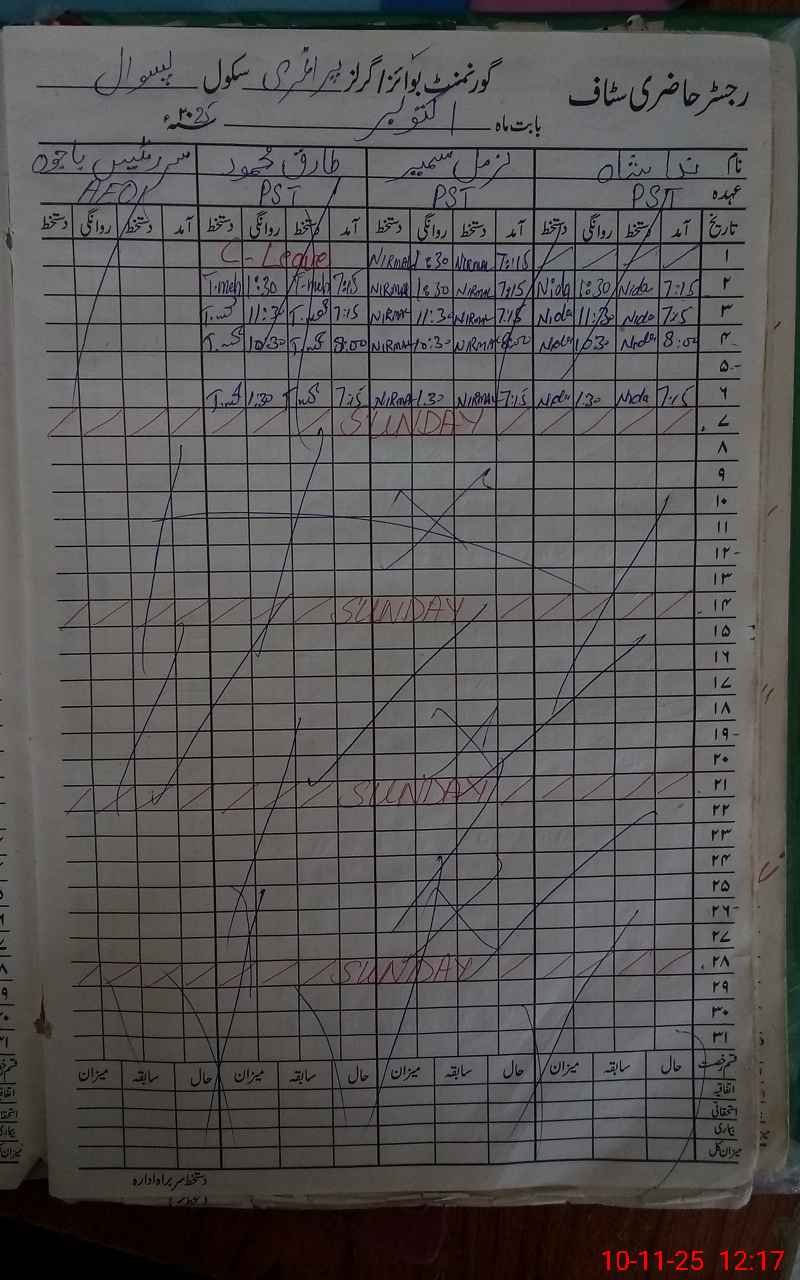 رجسٹر حاضری سٹاف
گورنمنٹ بوائز / گرلز پرائمری سکول پسوال
بابت ماہ اکتوبر ۲۰25ء
نام ندا شاہ نرمل سمیر طارق محمود
عہدہ PST PST PST AEO
تاریخ آمد دستخط روانگی دستخط آمد دستخط روانگی دستخط آمد دستخط روانگی دستخط آمد دستخط روانگی دستخط
۱ 7:15 NIRMAL 1:30 NIRMAL C-Leave
۲ 7:15 Nida 1:30 Nida 7:15 NIRMAL 1:30 NIRMAL 7:15 T.meh 1:30 T.meh
۳ 7:15 Nida 11:30 Nida 7:15 NIRMAL 11:30 NIRMAL 7:15 11:30
۴ 8:00 Nida 10:30 Nida 8:00 NIRMAL 10:30 NIRMAL 8:00 10:30
۵
۶ 7:15 Nida 1:30 Nida 7:15 NIRMAL 1:30 NIRMAL 7:15 1:30
۷ SUNDAY
۸
۹
۱۰
۱۱
۱۲
۱۳
۱۴ SUNDAY
۱۵
۱۶
۱۷
۱۸
۱۹
۲۰
۲۱ SUNDAY
۲۲
۲۳
۲۴
۲۵
۲۶
۲۷
۲۸ SUNDAY
۲۹
۳۰
۳۱
قسم رخصت حال سابقہ میزان حال سابقہ میزان حال سابقہ میزان حال سابقہ میزان
اتفاقیہ
استحقاقی
بیماری
میزان کل
دستخط سربراہ ادارہ
10-11-25 12:17